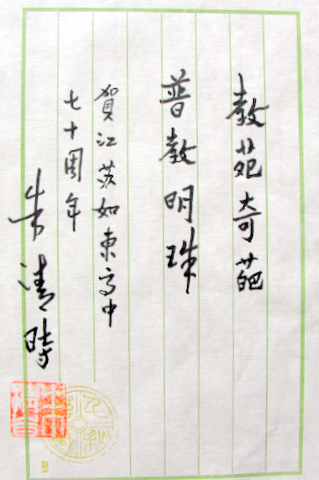 教苑奇葩
普教明珠
贺江苏如东高中
七十周年
朱清时